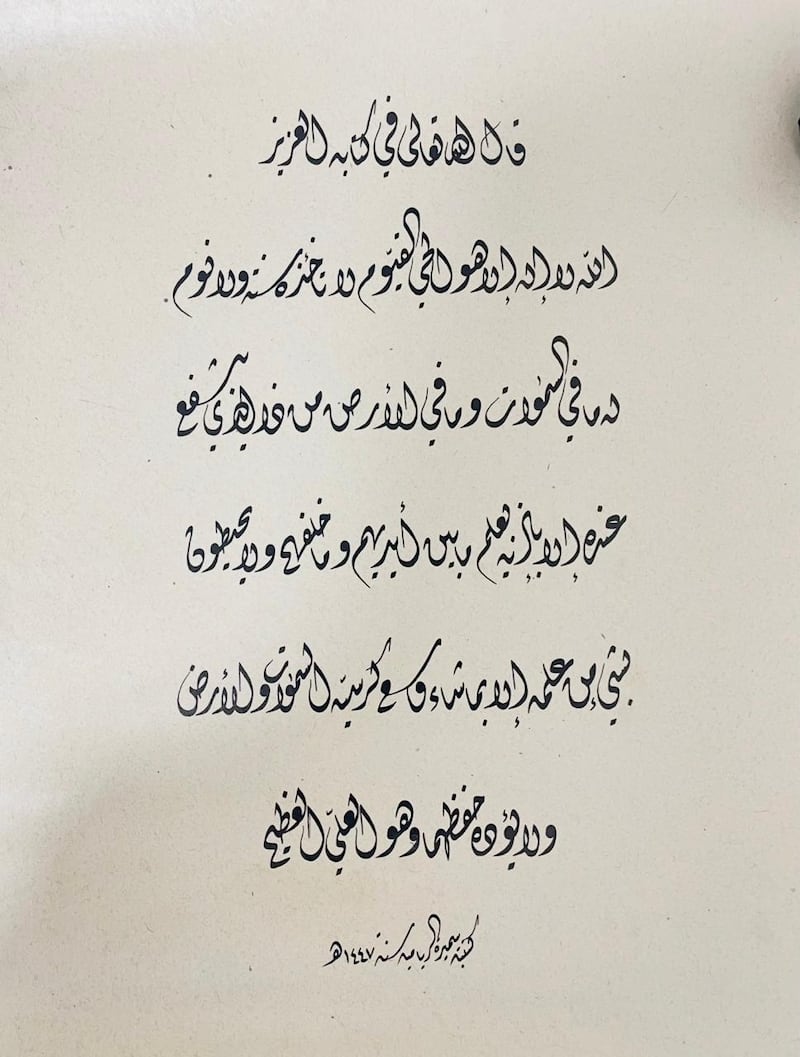 قال الله تعالى في كتابه العزيز
الله لا إله إلا هو الحي القيّوم لا تأخذه سنة ولا نوم
له ما في السمٰوات وما في الأرض من ذا الذي يشفع
عنده إلا بإذنه يعلم ما بين أيديهم وما خلفهم ولا يحيطون
بشيء من علمه إلا بما شاء وسع كرسيّه السمٰوات والأرض
ولا يؤده حفظهما وهو العليّ العظيم
كتبته سنة ١٤٤٧هـ